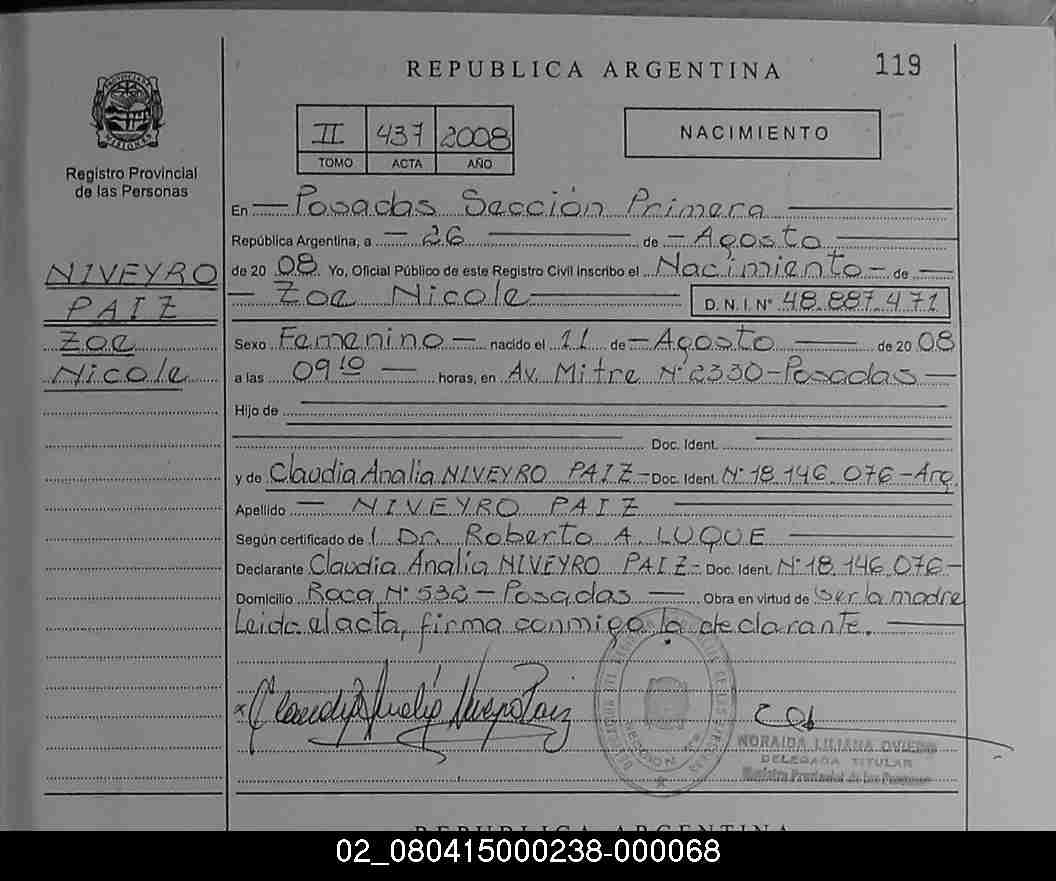 REPUBLICA ARGENTINA
119
PROVINCIA DE MISIONES
Registro Provincial
de las Personas
II 437 2008
TOMO ACTA AÑO
NACIMIENTO
En — Posadas Sección Primera
República Argentina, a — 26 de — Agosto
de 2008. Yo, Oficial Público de este Registro Civil inscribo el Nacimiento — de —
— Zoe Nicole D.N.I. Nº 48.887.471
NIVEYRO
PAIZ
Zoe
Nicole
Sexo Femenino — nacido el 11 de — Agosto — de 2008
a las 09 10 — horas, en Av. Mitre Nº 2330 - Posadas —
Hijo de
Doc. Ident.
y de Claudia Analia NIVEYRO PAIZ - Doc. Ident. Nº 18.146.076 - Arg.
Apellido — NIVEYRO PAIZ
Según certificado de Dr. Roberto A. LUQUE
Declarante Claudia Analia NIVEYRO PAIZ - Doc. Ident. Nº 18.146.076 -
Domicilio Roca Nº 532 - Posadas — Obra en virtud de ser la madre
Leida el acta, firma conmigo la declarante.
NORAIDA LILIANA OVIEDO
DELEGADA TITULAR
Registro Provincial de las Personas
REPUBLICA ARGENTINA
02_080415000238-000068